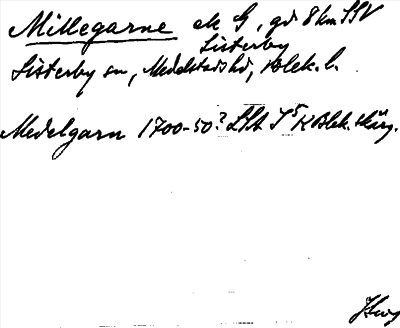 Millegarne ek G, gd 8 km SSV
Listerby
Listerby sn, Medelstads hd, Blek. l.
Medelgarn 1700-50? LSA I⁵ K Blek. skärg.